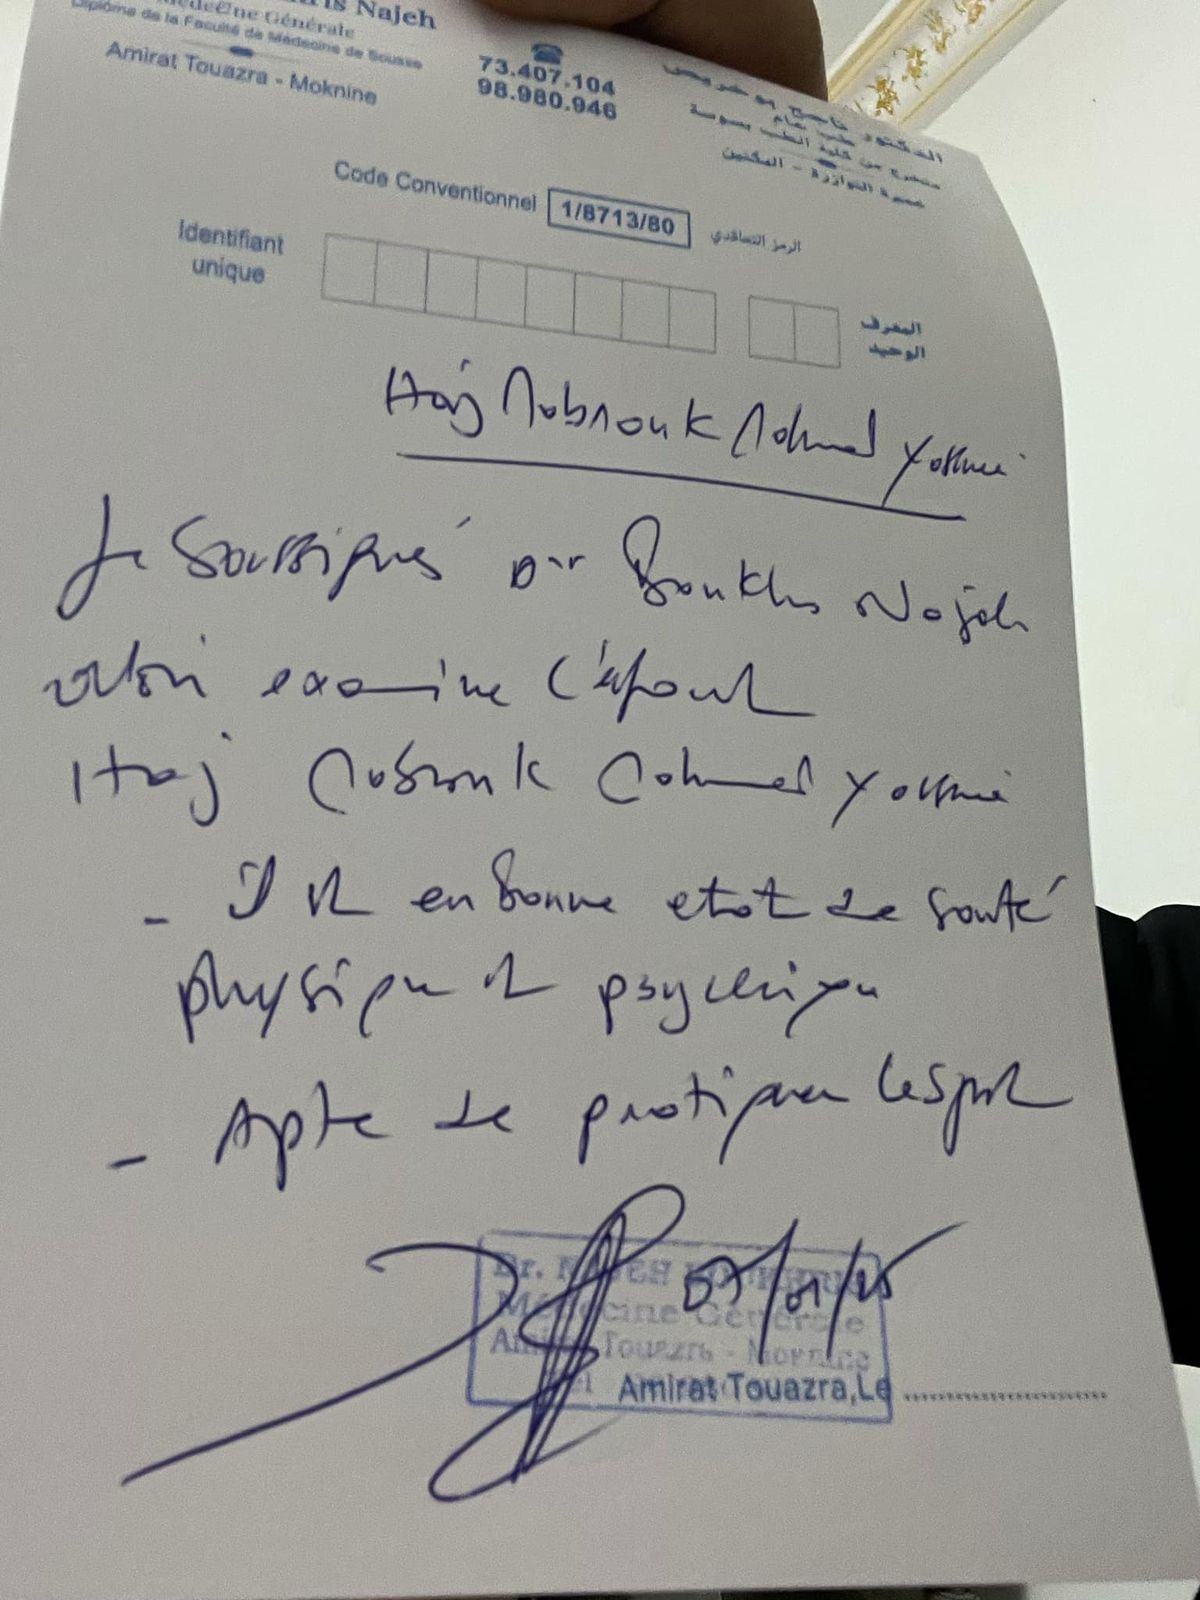 Najeh
Médecine Générale
Diplômé de la Faculté de Médecine de Sousse
Amirat Touazra - Moknine
73.407.104
98.980.946
الدكتور ناجح بوخريص
طب عام
متخرج من كلية الطب بسوسة
عميرة التوازرة - المكنين
Code Conventionnel 1/8713/80 الرمز التعاقدي
Identifiant unique
المعرف الوحيد
Haj Mabrouk Mohamed
Je soussigné Dr Najeh
examine
Haj Mabrouk Mohamed
- Il est en bonne etat de santé
physique et psychique
- Apte de pratiquer le sport
Dr. NAJEH
Médecine Générale
Amirat Touazra - Moknine
07/01/25
Amirat Touazra, Le